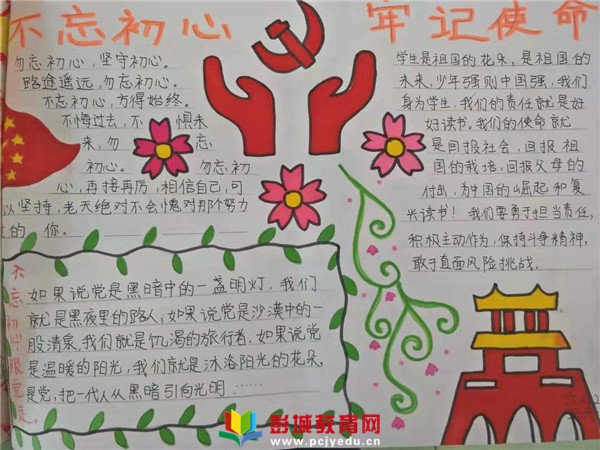 不忘初心
牢记使命
勿忘初心,坚守初心。
路途遥远,勿忘初心。
不忘初心,方得始终。
不悔过去,不惧未
来,勿忘
初心。勿忘初
心,再接再厉,相信自己,可
以坚持,老天绝对不会愧对那个努力
的你。
学生是祖国的花朵,是祖国的
未来,少年强则中国强,我们
身为学生,我们的责任就是好
好读书。我们的使命就
是回报社会,回报祖
国的栽培,回报父母的
付出,为中国的崛起和复
兴读书!我们要勇于担当责任,
积极主动作为,保持斗争精神,
敢于直面风险挑战。
不忘初心,跟党走。
如果说党是黑暗中的一盏明灯,我们
就是黑夜里的路人;如果说党是沙漠中的一
股清泉,我们就是饥渴的旅行者,如果说党
是温暖的阳光,我们就是沐浴阳光的花朵,
是党,把一代人从黑暗引向光明……
彭城教育网
www.pcjyedu.cn